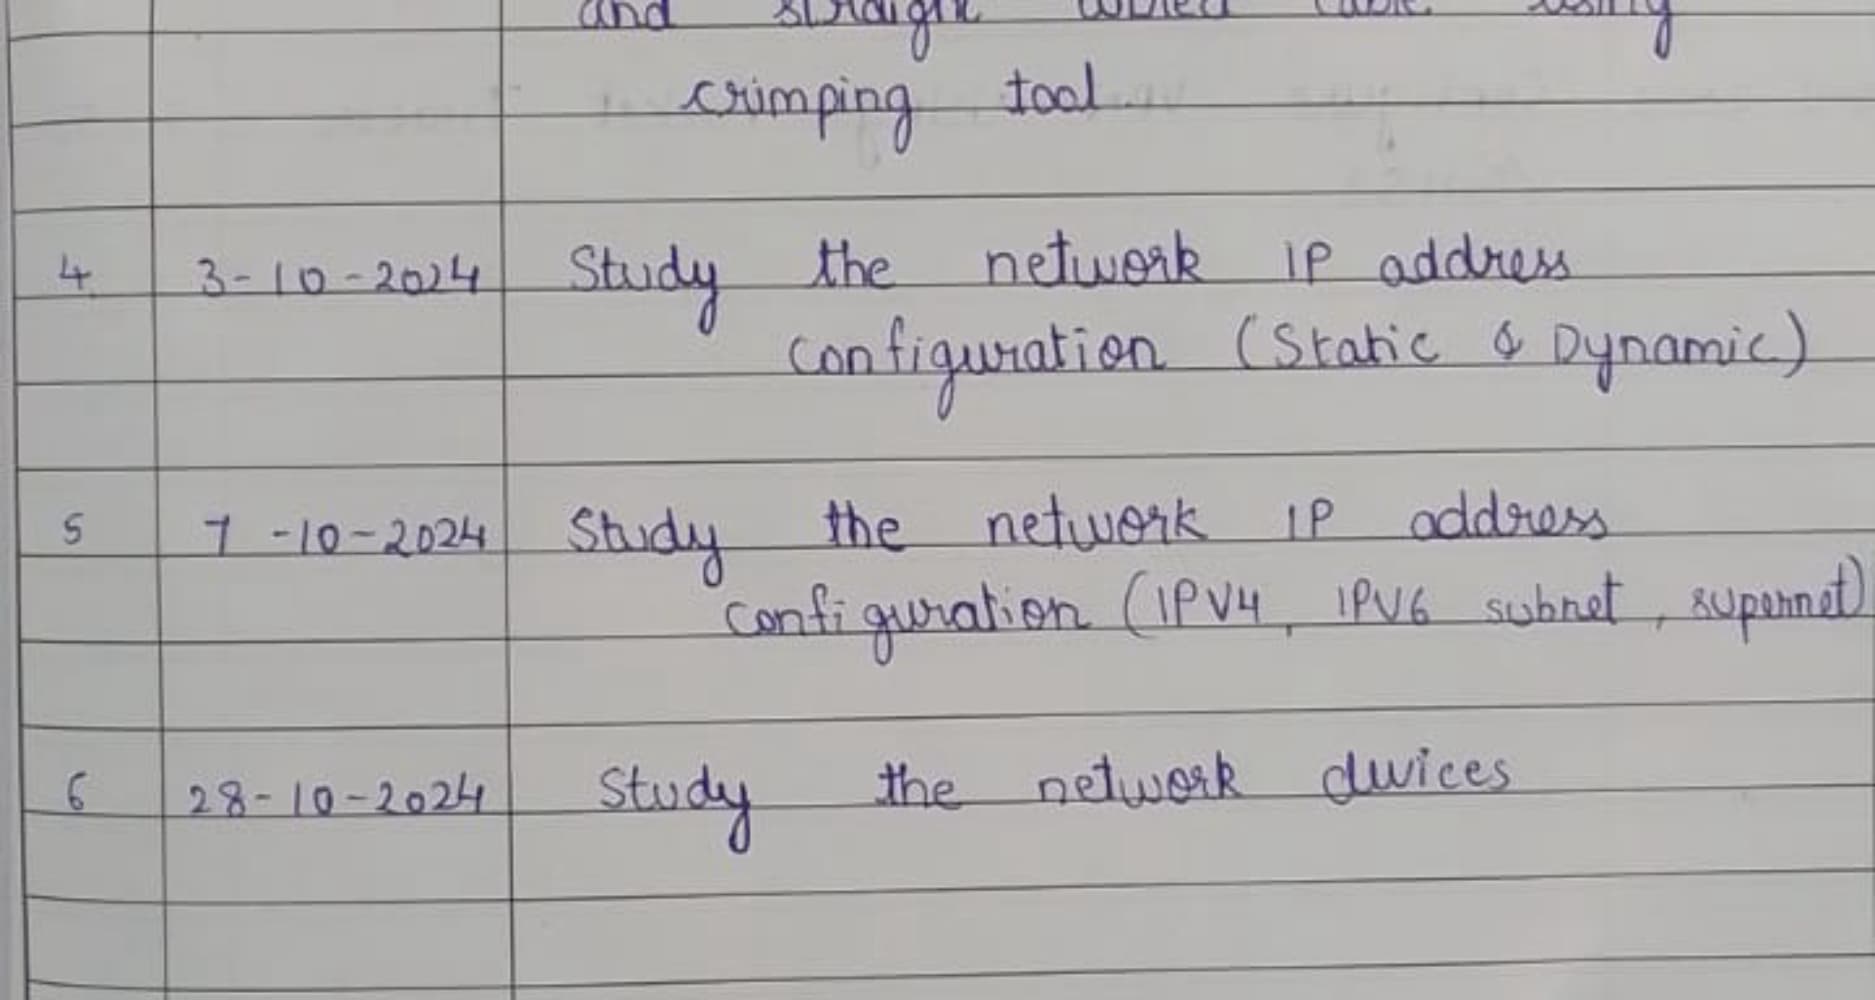 and straight cable using
crimping tool
4 3-10-2024 Study the network IP address
configuration (Static & Dynamic)
5 7-10-2024 Study the network IP address
configuration (IPV4, IPV6 subnet, supernet)
6 28-10-2024 Study the network devices